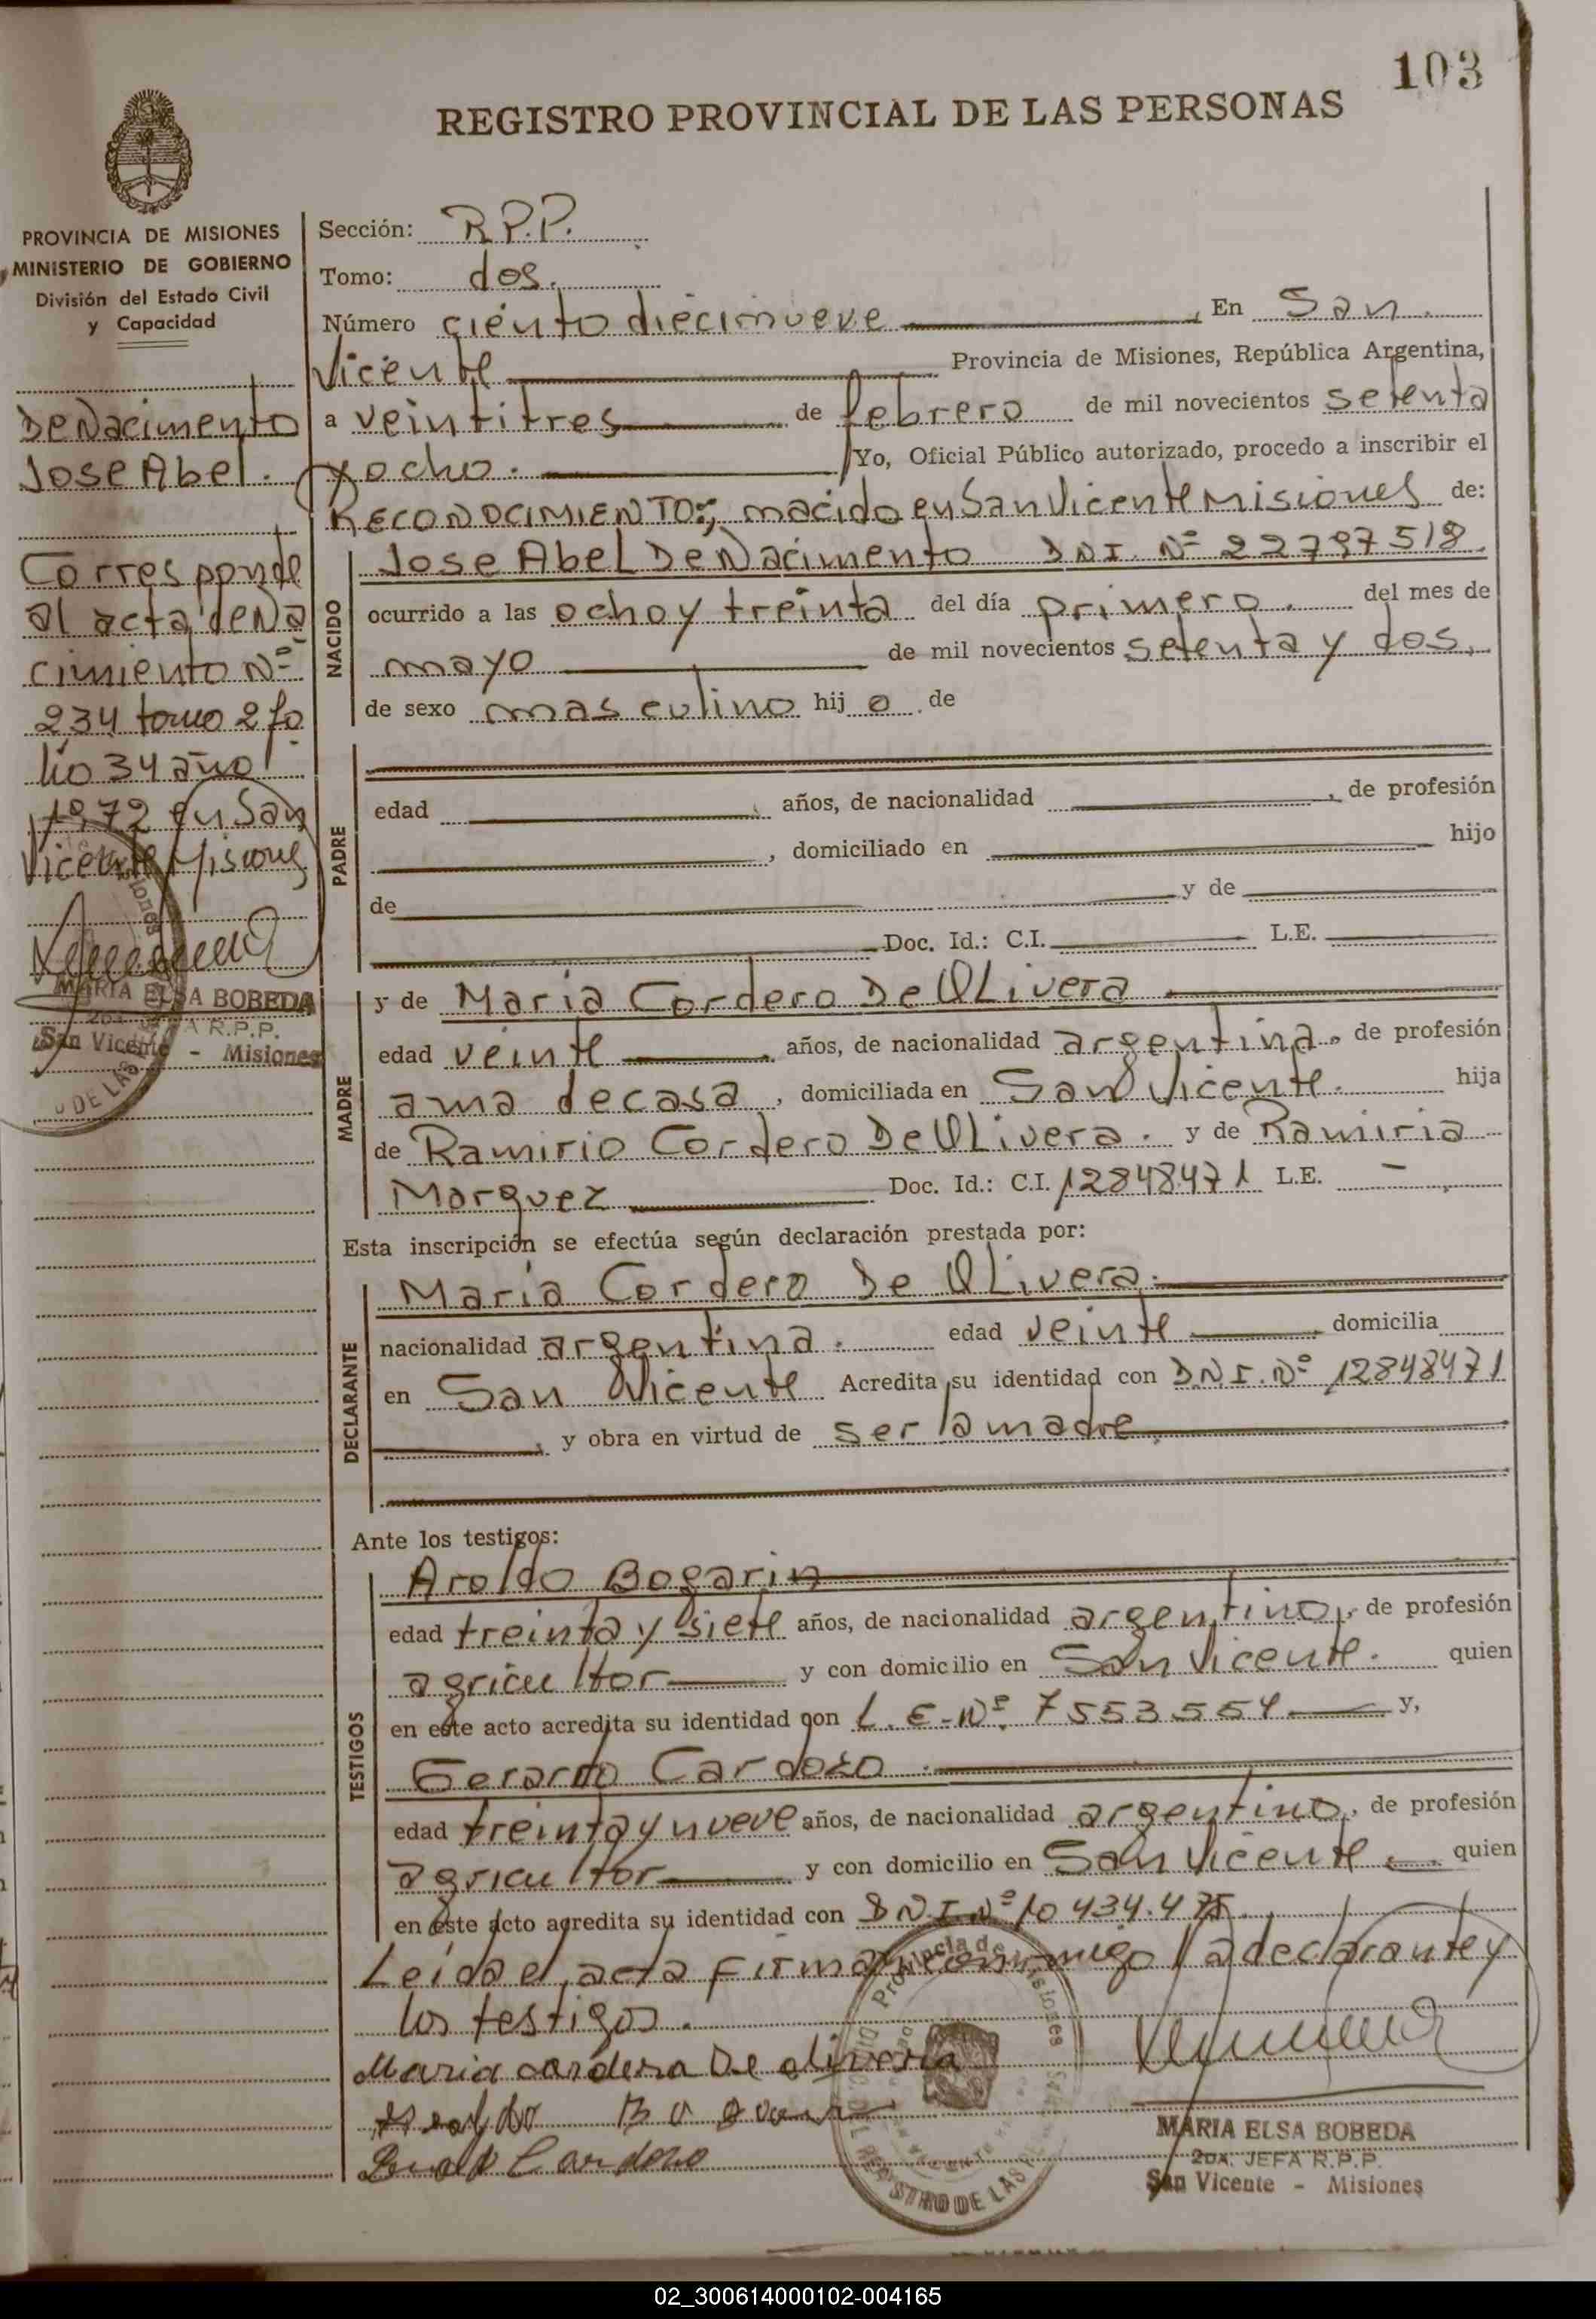 103
REGISTRO PROVINCIAL DE LAS PERSONAS
PROVINCIA DE MISIONES
MINISTERIO DE GOBIERNO
División del Estado Civil
y Capacidad
De Nacimento
Jose Abel.
Corresponde
al acta de Na
cimiento Nº
234 tomo 2 fo
lio 34 año
1972 en San
Vicente Misiones
MARIA ELSA BOBEDA
R.P.P.
San Vicente - Misiones
Sección: R.P.P.
Tomo: dos.
Número ciento diecinueve, En San
Vicente Provincia de Misiones, República Argentina,
a veintitres de febrero de mil novecientos setenta
y ocho. Yo, Oficial Público autorizado, procedo a inscribir el
RECONOCIMIENTO; nacido en San Vicente Misiones de:
NACIDO
Jose Abel De Nacimento D.N.I. Nº 22797518.
ocurrido a las ocho y treinta del día primero. del mes de
mayo de mil novecientos setenta y dos.
de sexo masculino hijo de
PADRE
edad , años, de nacionalidad , de profesión
, domiciliado en hijo
de y de
Doc. Id.: C.I. L.E.
MADRE
y de Maria Cordero De OLivera
edad veinte años, de nacionalidad argentina, de profesión
ama de casa, domiciliada en San Vicente. hija
de Ramirio Cordero De OLivera. y de Ramiria
Marquez Doc. Id.: C.I. 12848471 L.E. -
Esta inscripción se efectúa según declaración prestada por:
DECLARANTE
Maria Cordero De OLivera.
nacionalidad argentina. edad veinte domicilia
en San Vicente Acredita su identidad con D.N.I. Nº 12848471
, y obra en virtud de ser la madre.
Ante los testigos:
TESTIGOS
Aroldo Bogarin
edad treinta y siete años, de nacionalidad argentino, de profesión
agricultor y con domicilio en San Vicente. quien
en este acto acredita su identidad con L.E. Nº 7553554 y,
Gerardo Cardozo.
edad treinta y nueve años, de nacionalidad argentino, de profesión
agricultor y con domicilio en San Vicente. quien
en este acto acredita su identidad con D.N.I. Nº 10434.475.
Leida el acta firman conmigo la declarante y
los testigos.
Maria cordero De olivera
Cardozo
Provincia de Misiones
REGISTRO DE LAS
MARIA ELSA BOBEDA
2DA. JEFA R.P.P.
San Vicente - Misiones
02_300614000102-004165